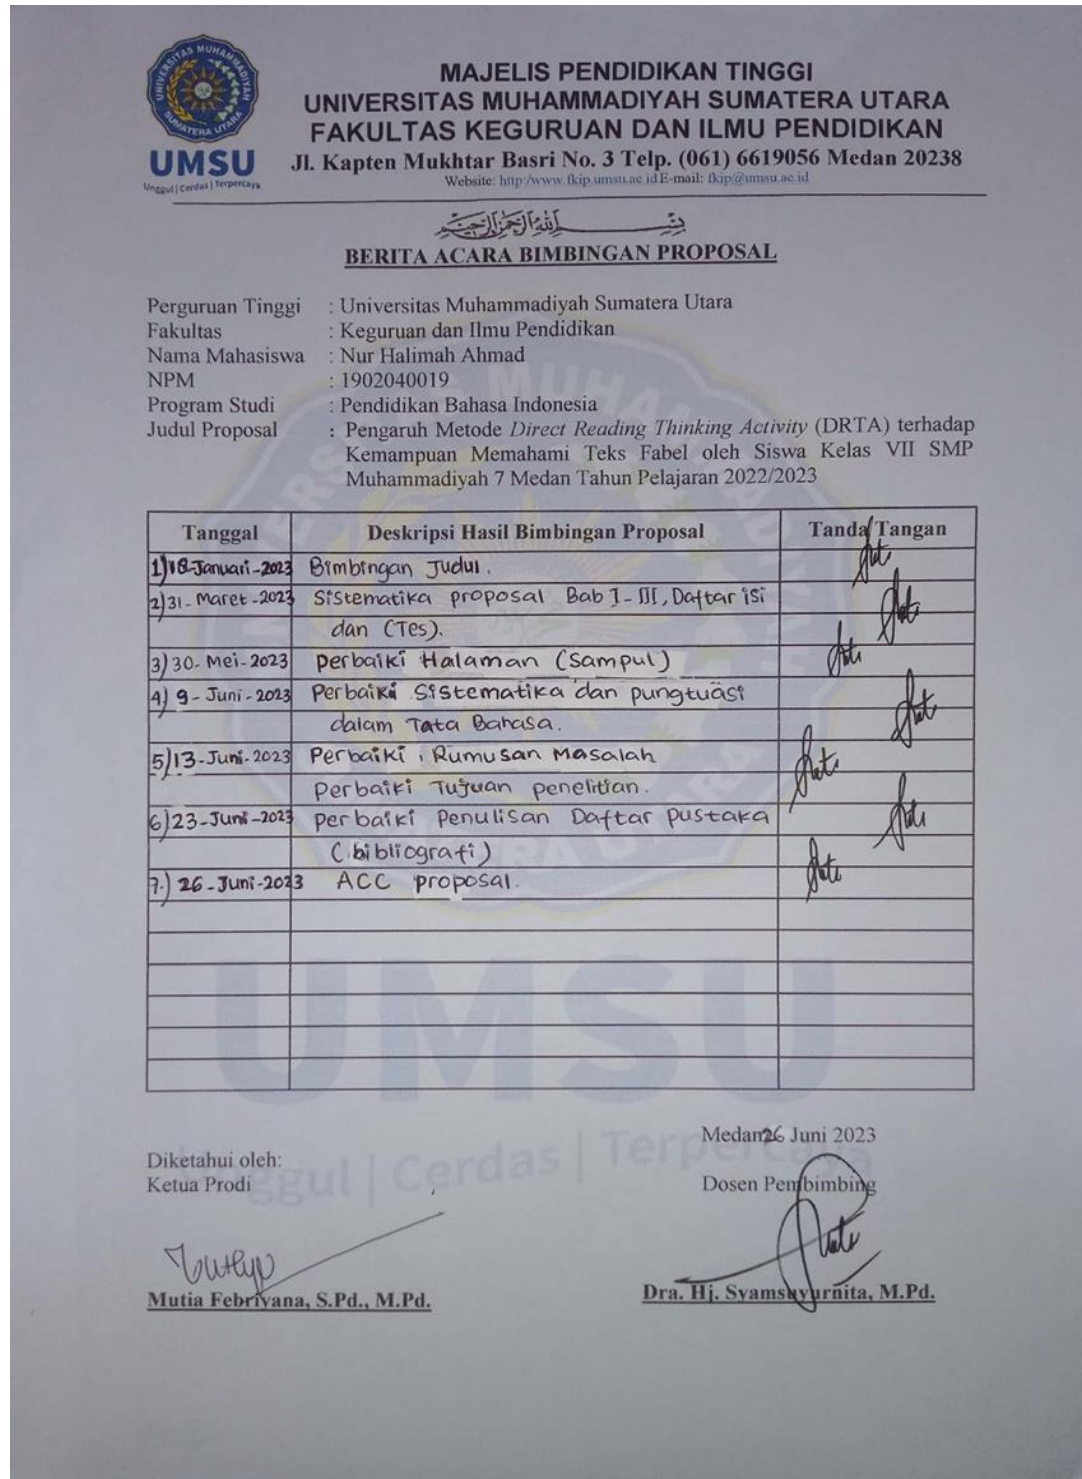 UNIVERSITAS MUHAMMADIYAH
SUMATERA UTARA
UMSU
Unggul | Cerdas | Terpercaya
MAJELIS PENDIDIKAN TINGGI
UNIVERSITAS MUHAMMADIYAH SUMATERA UTARA
FAKULTAS KEGURUAN DAN ILMU PENDIDIKAN
Jl. Kapten Mukhtar Basri No. 3 Telp. (061) 6619056 Medan 20238
Website: http:/www.fkip.umsu.ac.id E-mail: fkip@umsu.ac.id
بسم الله الرحمن الرحيم
BERITA ACARA BIMBINGAN PROPOSAL
Perguruan Tinggi : Universitas Muhammadiyah Sumatera Utara
Fakultas : Keguruan dan Ilmu Pendidikan
Nama Mahasiswa : Nur Halimah Ahmad
NPM : 1902040019
Program Studi : Pendidikan Bahasa Indonesia
Judul Proposal : Pengaruh Metode Direct Reading Thinking Activity (DRTA) terhadap
Kemampuan Memahami Teks Fabel oleh Siswa Kelas VII SMP
Muhammadiyah 7 Medan Tahun Pelajaran 2022/2023
Tanggal Deskripsi Hasil Bimbingan Proposal Tanda Tangan
1) 18-Januari-2023 Bimbingan Judul.
2) 31-Maret-2023 Sistematika proposal Bab I-III, Daftar isi
dan (Tes).
3) 30-Mei-2023 perbaiki Halaman (Sampul)
4) 9-Juni-2023 Perbaiki Sistematika dan pungtuasi
dalam Tata Bahasa.
5) 13-Juni-2023 Perbaiki, Rumusan Masalah
perbaiki Tujuan penelitian.
6) 23-Juni-2023 perbaiki Penulisan Daftar pustaka
(bibliografi)
7.) 26-Juni-2023 ACC proposal.
UMSU
Unggul | Cerdas | Terpercaya
Medan 26 Juni 2023
Diketahui oleh:
Ketua Prodi Dosen Pembimbing
Mutia Febriyana, S.Pd., M.Pd. Dra. Hj. Syamsuyurnita, M.Pd.